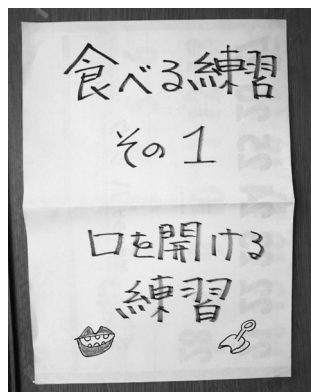 食べる練習
その1
口を開ける
練習